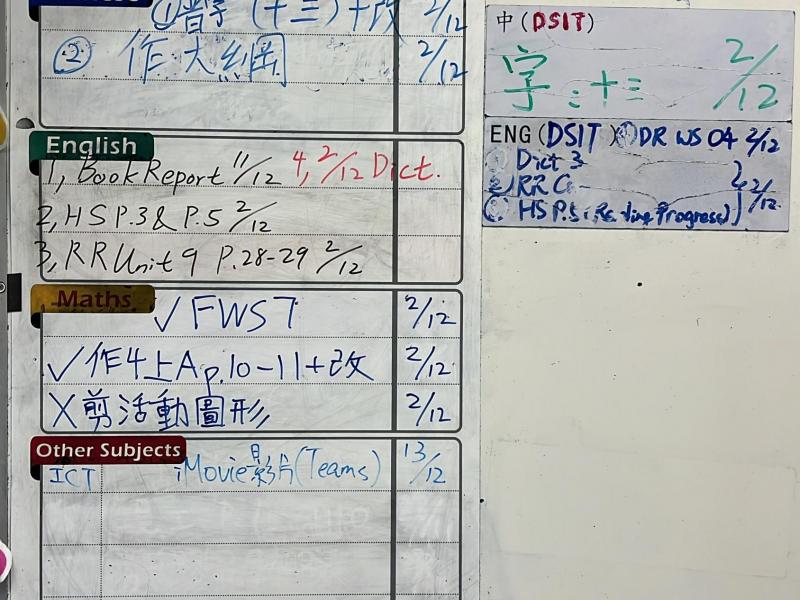 ① 普字(十三)+改 2/12
② 作大綱 2/12
English
1, Book Report 11/12 4, 2/12 Dict.
2, HS P.3 & P.5 2/12
3, RR Unit 9 P.28-29 2/12
Maths
✓ FWS7 2/12
✓作4上A p.10-11+改 2/12
X剪活動圖形 2/12
Other Subjects
ICT iMovie影片(Teams) 13/12
中(DSIT)
字:十三 2/12
ENG(DSIT) DR WS 04 2/12
Dict 3
RR 2/12
HS P.5 Progress)